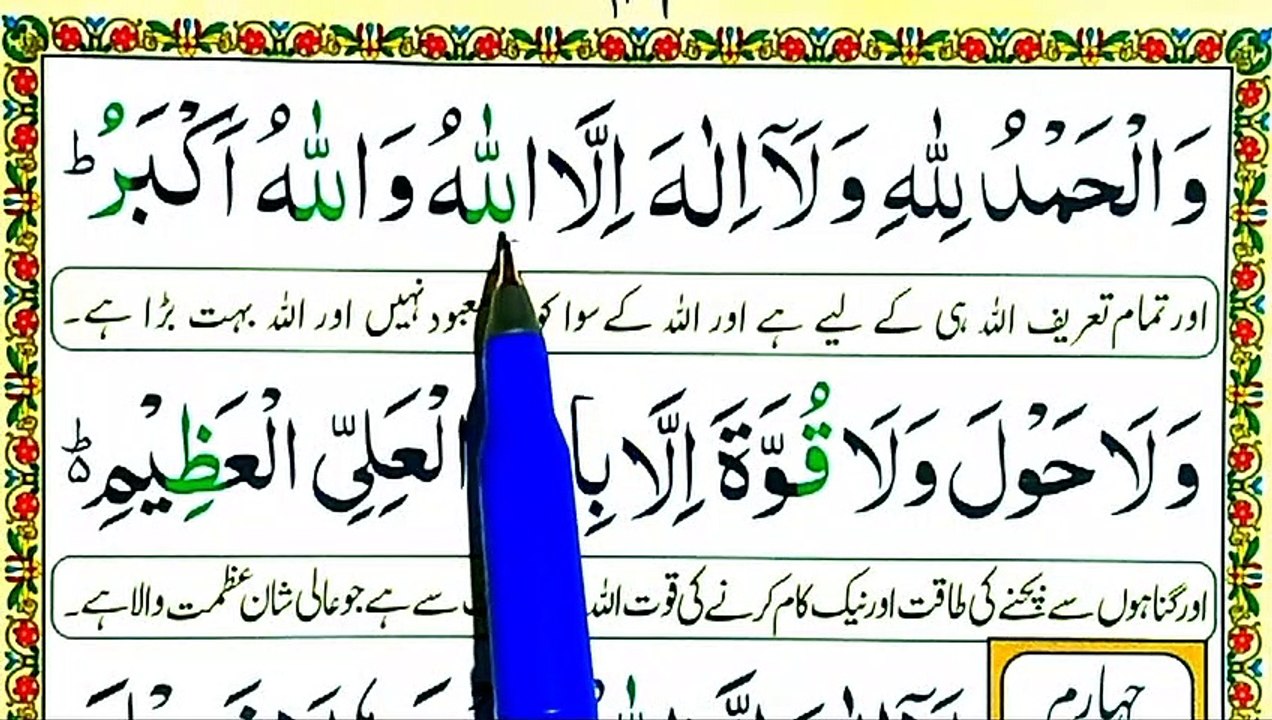 وَالْحَمْدُ لِلّٰهِ وَلَآ اِلٰهَ اِلَّا اللّٰهُ وَاللّٰهُ اَكْبَرُ ؕ
اور تمام تعریف اللہ ہی کے لیے ہے اور اللہ کے سوا نہیں اور اللہ بہت بڑا ہے۔
وَلَا حَوْلَ وَلَا قُوَّةَ اِلَّا الْعَلِیِّ الْعَظِیْمِ ؕ
اور گناہوں سے بچنے کی طاقت اور نیک کام کرنے کی قوت اللہ سے ہے جو عالی شان عظمت والا ہے۔
چہارم